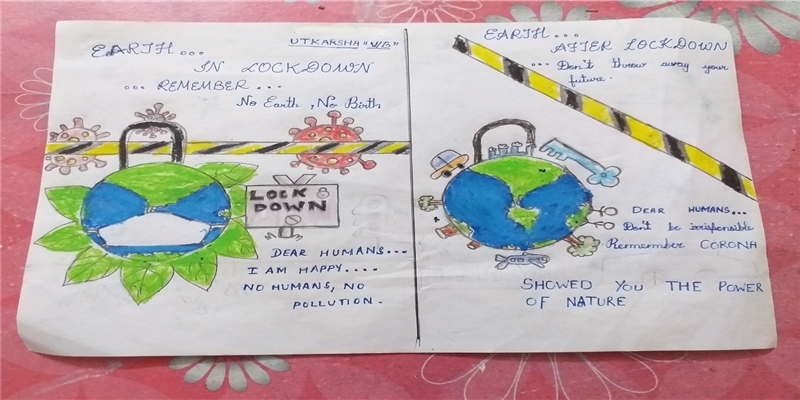 UTKARSHA "V/B"
EARTH...
IN LOCKDOWN
... REMEMBER...
No Earth, No Birth
LOCK
DOWN
DEAR HUMANS...
I AM HAPPY....
NO HUMANS, NO
POLLUTION.
EARTH...
AFTER LOCKDOWN
... Don't throw away your
future.
DEAR HUMANS...
Don't be irrisponsible
Remember CORONA
SHOWED YOU THE POWER
OF NATURE